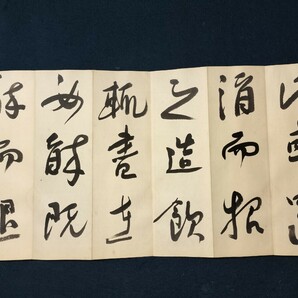 酒而招
之造飲
輒盡在
必醉既
醉而退